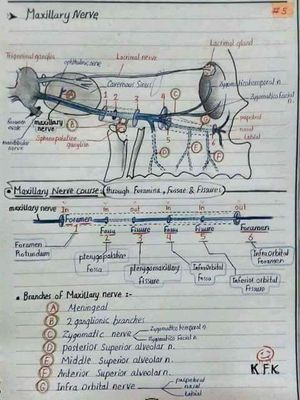 #5
Maxillary Nerve
Trigeminal ganglia
ophthalmic n
Lacrimal nerve
Lacrimal gland
Cavernous Sinus
Zygomaticotemporal n
Zygomatico facial n.
A
B
C
foramen ovale
maxillary nerve
mandibular nerve
Sphenopalatine ganglia
palpebral
nasal
labial
D
E
F
G
Maxillary Nerve course: (through Foramina, Fossae & Fissures)
maxillary nerve
In In out In In out
Foramen Fossa Fissure Fissure Foramen
1 2 3 4 5 6
Foramen Rotundum
pterygopalatine Fossa
pterygomaxillary Fissure
InfraOrbital Fossa
Inferior orbital Fissure
InfraOrbital Foramen
Branches of Maxillary nerve :-
A Meningeal
B 2 ganglionic branches
C Zygomatic nerve
Zygomatico temporal n.
Zygomatico facial n.
D posterior Superior alveolar n.
E Middle Superior alveolar n.
F Anterior Superior alveolar n.
G Infra Orbital nerve
palpebral
nasal
labial
K.F.K